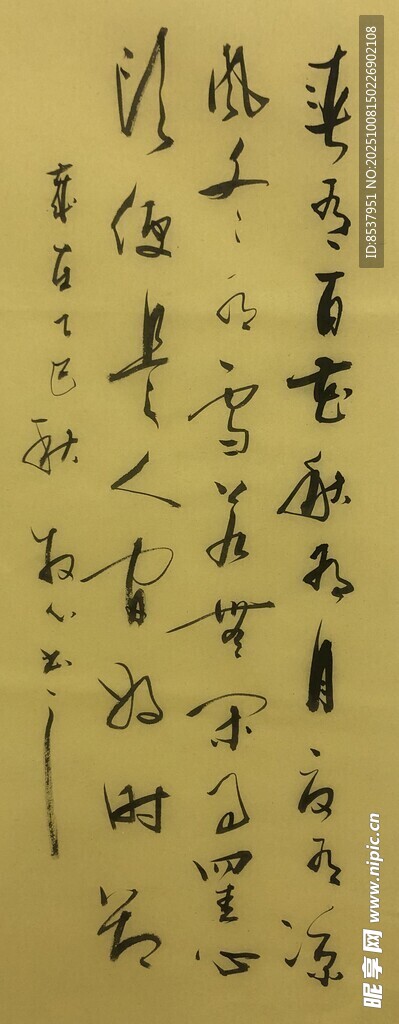 春有百花秋有月夏有凉
风冬有雪若无闲事罣心
头便是人间好时节
岁在乙巳秋 牧心书
ID:8537951 NO:20251008150226902108
昵享网 www.nipic.cn